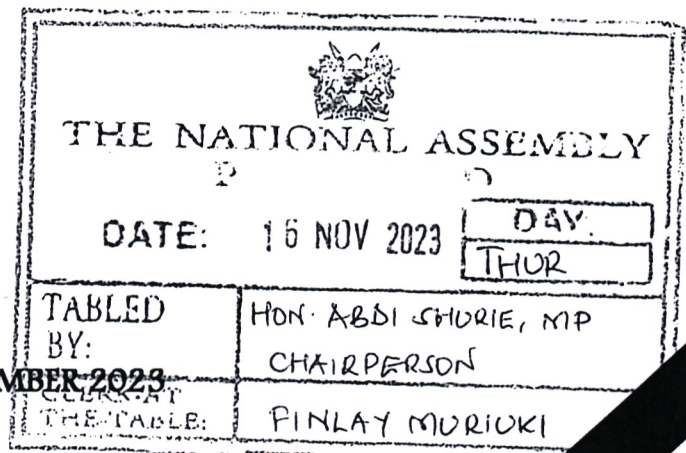 THE NATIONAL ASSEMBLY
DATE: 16 NOV 2023
DAY.
THUR
TABLED
BY:
HON. ABDI SHURIE, MP
CHAIRPERSON
MBER 2023
CLERK-AT
THE-TABLE:
FINLAY MURIUKI